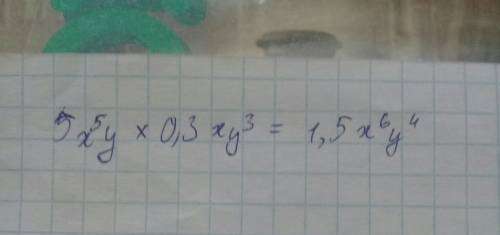 5x⁵y × 0,3 xy³ = 1,5 x⁶y⁴